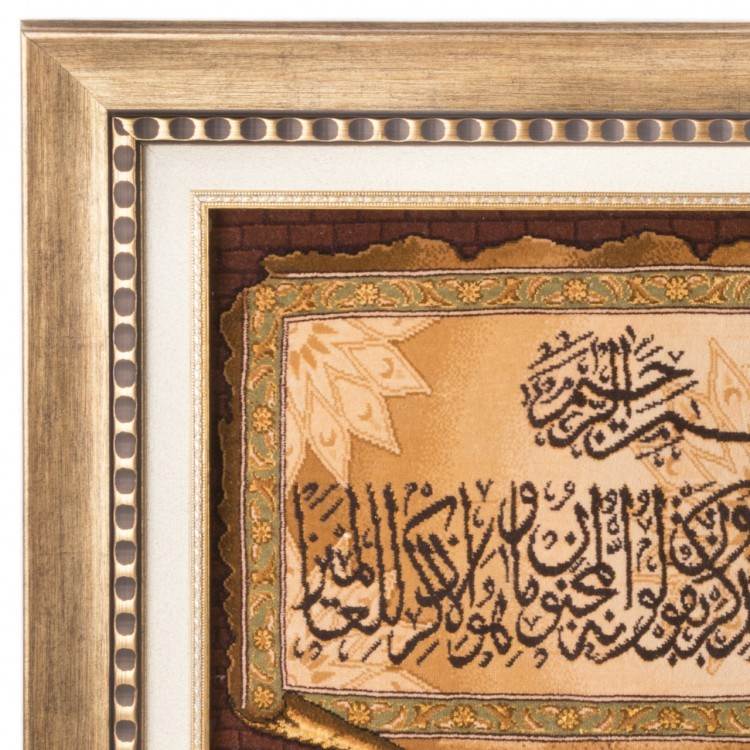 الرحمن الرحيم
الذكر ويقولون إنه لمجنون وما هو إلا ذكر للعالمين